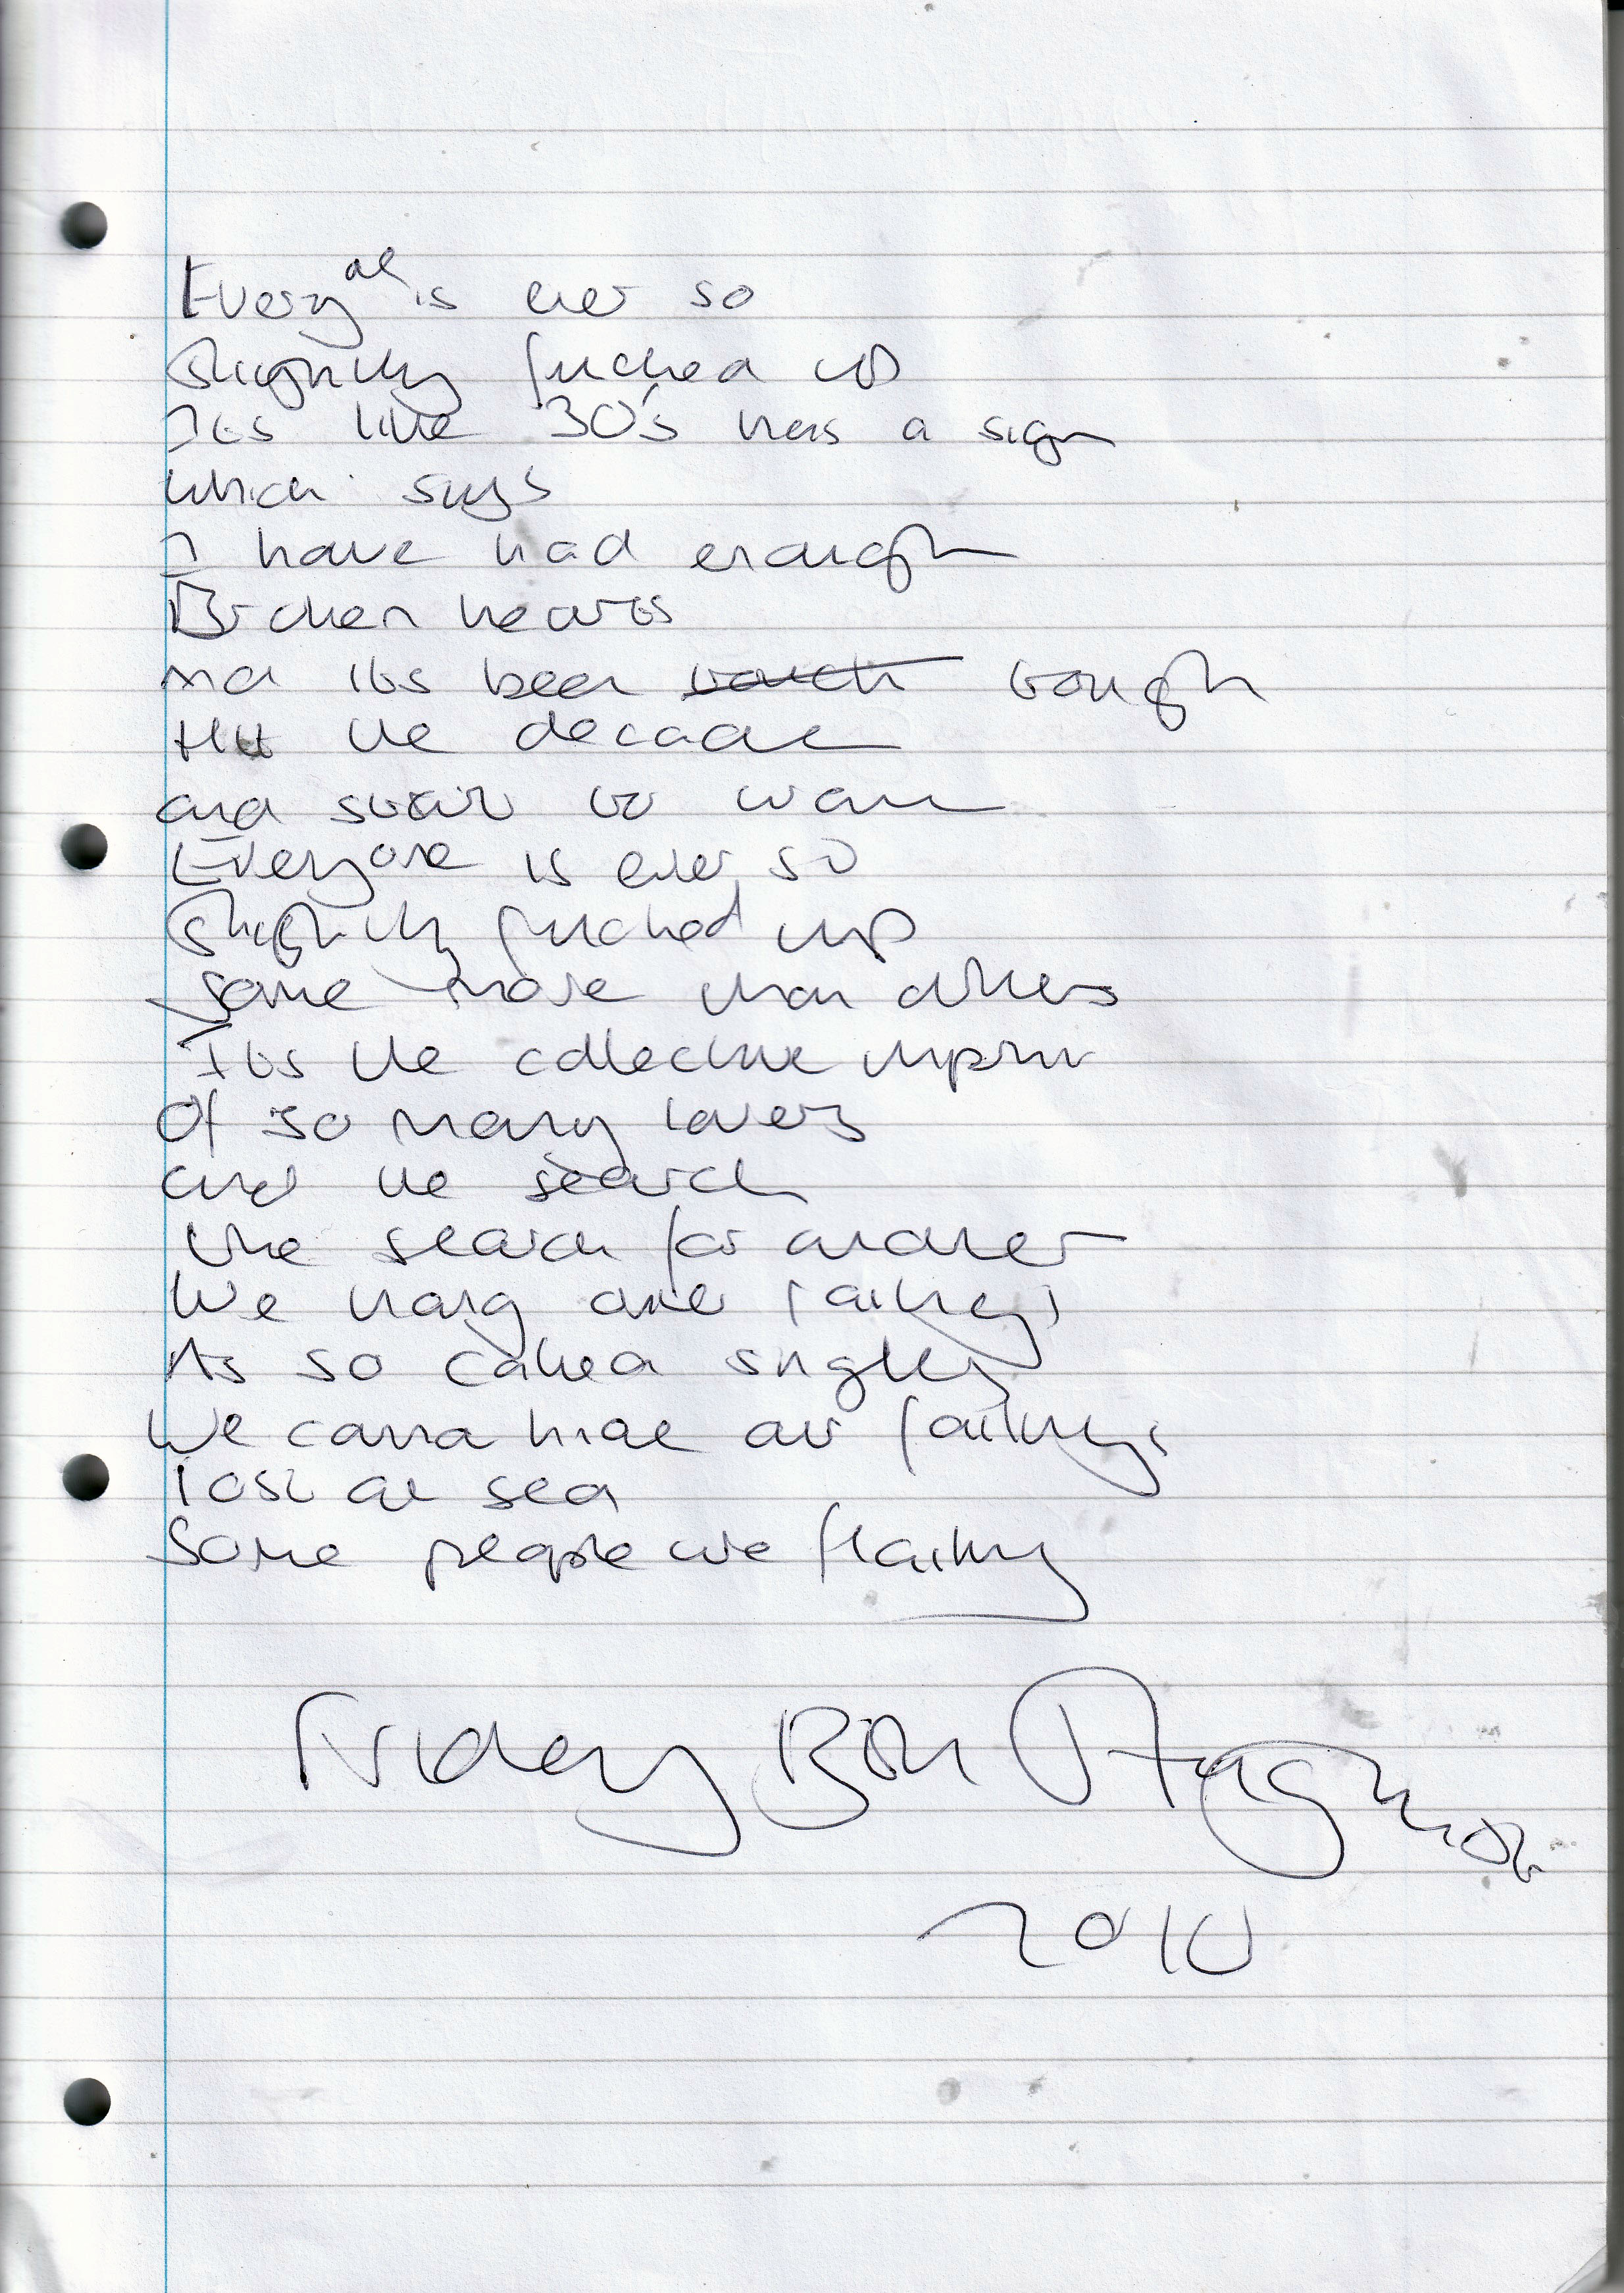 Everyone is ever so
Slightly fucked up
Its like 30's has a sign
which says
I have had enough
Broken hearts
And its been touch tough
Hit the decade
and start to wane
Everyone is ever so
Slightly fucked up
Some more than others
Its the collective imprint
Of so many lovers
and the search
the search for another
We hang over railings
As so called singleys
We canna hide our failings
lost at sea
Some people are flailing
Friday 13th August
2010